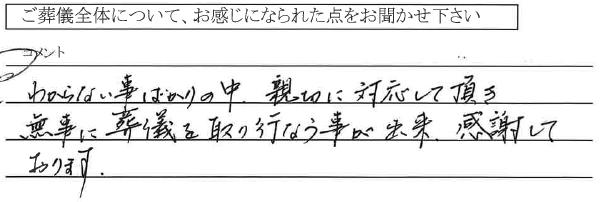 ご葬儀全体について、お感じになられた点をお聞かせ下さい
コメント
わからない事ばかりの中、親切に対応して頂き
無事に葬儀を取り行なう事が出来、感謝して
おります。